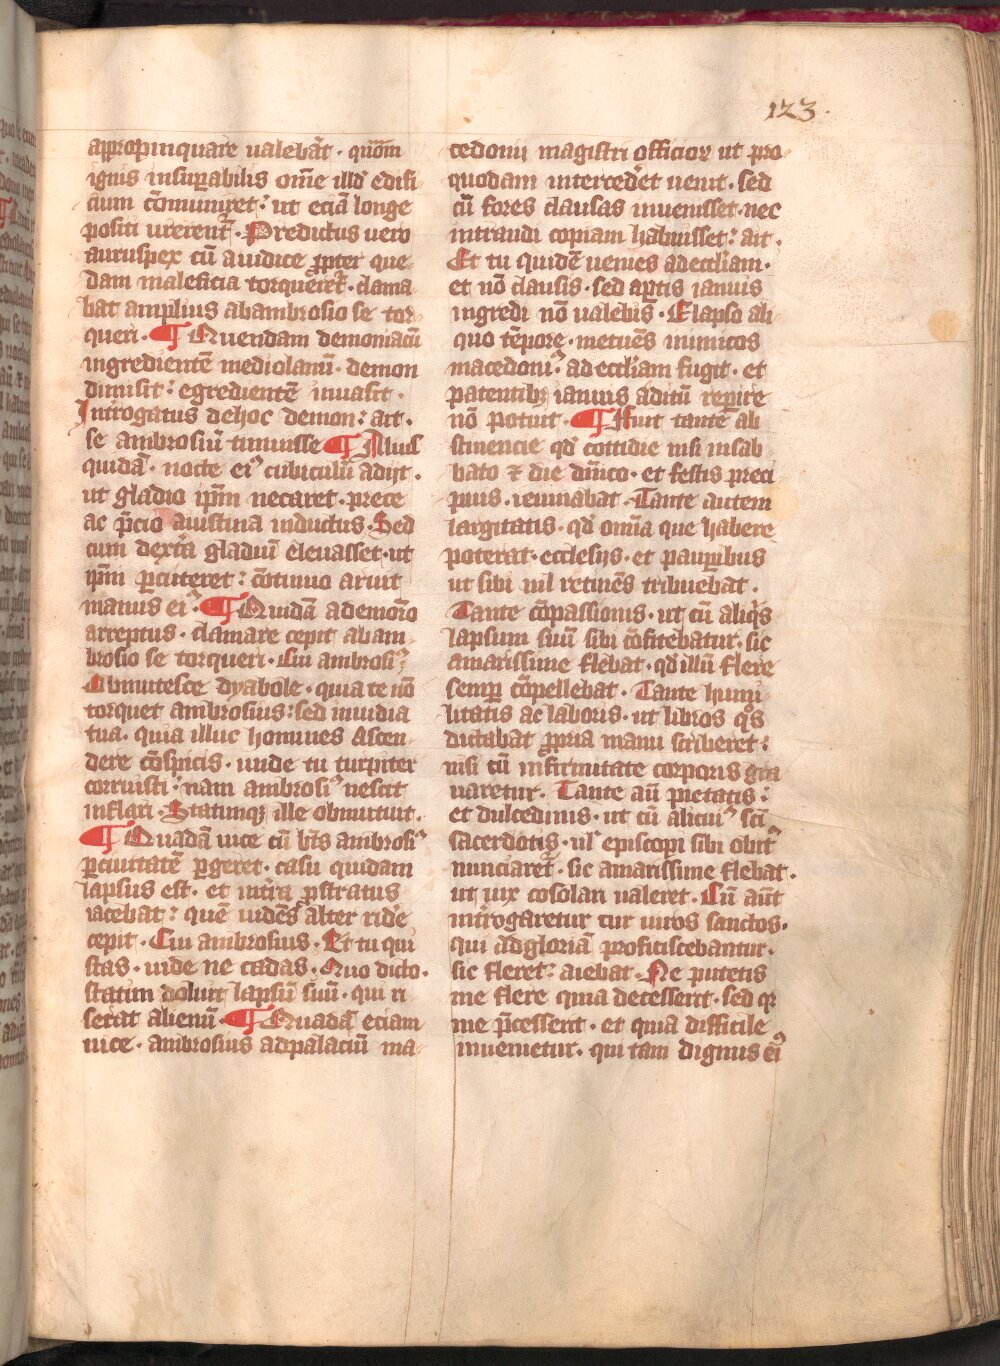 123.
appropinquare ualebāt · quō̄m
ignis insuꝑabilis om̄e illd̾ edifi-
cium cōmuniret : ut eciā longe
positi urerent᷑ · Predictus uero
auruspex cū a iudice ꝓpter que-
dam maleficia torqueret᷑ · clama
bat amplius ab ambrosio se tor-
queri · ¶ Quendam demoniacū
ingredientē mediolanū · demon
dimisit : egredientē inuasit ·
Introgatus de hoc demon : ait ·
se ambrosiū timuisse ¶ Alius
quidā · nocte eiꝰ cubiculū adijt ·
ut gladio ip̄m necaret · prece
ac p̄cio a iustina inductus · Sed
cum dextra gladiū eleuasset · ut
ip̄m ꝑcuteret : cōtinuo aruit
manus eiꝰ · ¶ Quidā a demoīo
arreptus · clamare cepit ab am-
brosio se torqueri · Cui ambrosiꝰ
Obmutesce dyabole · quia te nō
torquet ambrosius : sed inuidia
tua · quia illuc homines ascen-
dere cōspicis · unde tu turpiter
corruisti : nam ambrosiꝰ nescit
inflari · Statimqꝫ ille obmutuit ·
¶ Quadā uice cū bt̄s ambrosiꝰ
ꝑ ciuitatē ꝑgeret · casu quidam
lapsus est · et in terra ꝓstratus
iacebat : quē uidēs alter ride͛
cepit · Cui ambrosius · Et tu qui
stas · uide ne cadas · Quo dicto ·
statim doluit lapsū suū · qui ri
serat alienū · ¶ Quadā eciam
uice · ambrosius ad palaciū ma-
cedonij magistri officioꝝ ut pro
quodam intercedet uenit · sed
cū fores clausas inuenisset · nec
intrandi copiam habuisset : ait ·
Et tu quidē uenies ad eccl̄iam ·
et nō clausis · sed aꝑtis ianuis
ingredi nō ualebis · Elapso ali-
quo tēpore · metuēs inimicos
macedoniꝰ · ad eccl̄iam fugit · et
patentibꝫ ianuis aditū reꝑire
nō potuit · ¶ Fuit tante ab
stinencie qd̾ cottidie nisi in sab
bato ⁊ die dn̄ico · et festis preci
puis · ieiunabat · Tante autem
largitatis · qd̾ omīa que habere
poterat · ecclesijs · et pauꝑibus
ut sibi nil retinēs tribuebat ·
Tante cōpassionis · ut cū aliqͥs
lapsum suū sibi cōfitebatur · sic
amarissime flebat · qd̾ illū flere
semꝑ cōpellebat · Tante humi-
litatis ac laboris · ut libros qͦs
dictabat ꝓpria manu scriberet :
nisi cū infirmitate corporis gra
uaretur · Tante aūt pietatis :
et dulcedinis · ut cū alicuiꝰ sc̄i
sacerdotis · ul̾ episcopi sibi obitꝰ
nunciaret᷑ · sic amarissime flebat ·
ut uix cōsolari ualeret · Cū aūt
introgaretur cur uiros sanctos ·
qui ad gloriā proficiscebantur ·
sic fleret : aiebat · Ne putetis
me flere quia decesserit · sed qꝛ
me p̄cesserit · et quia difficile
inuenietur · qui tam dignus eiꝰ